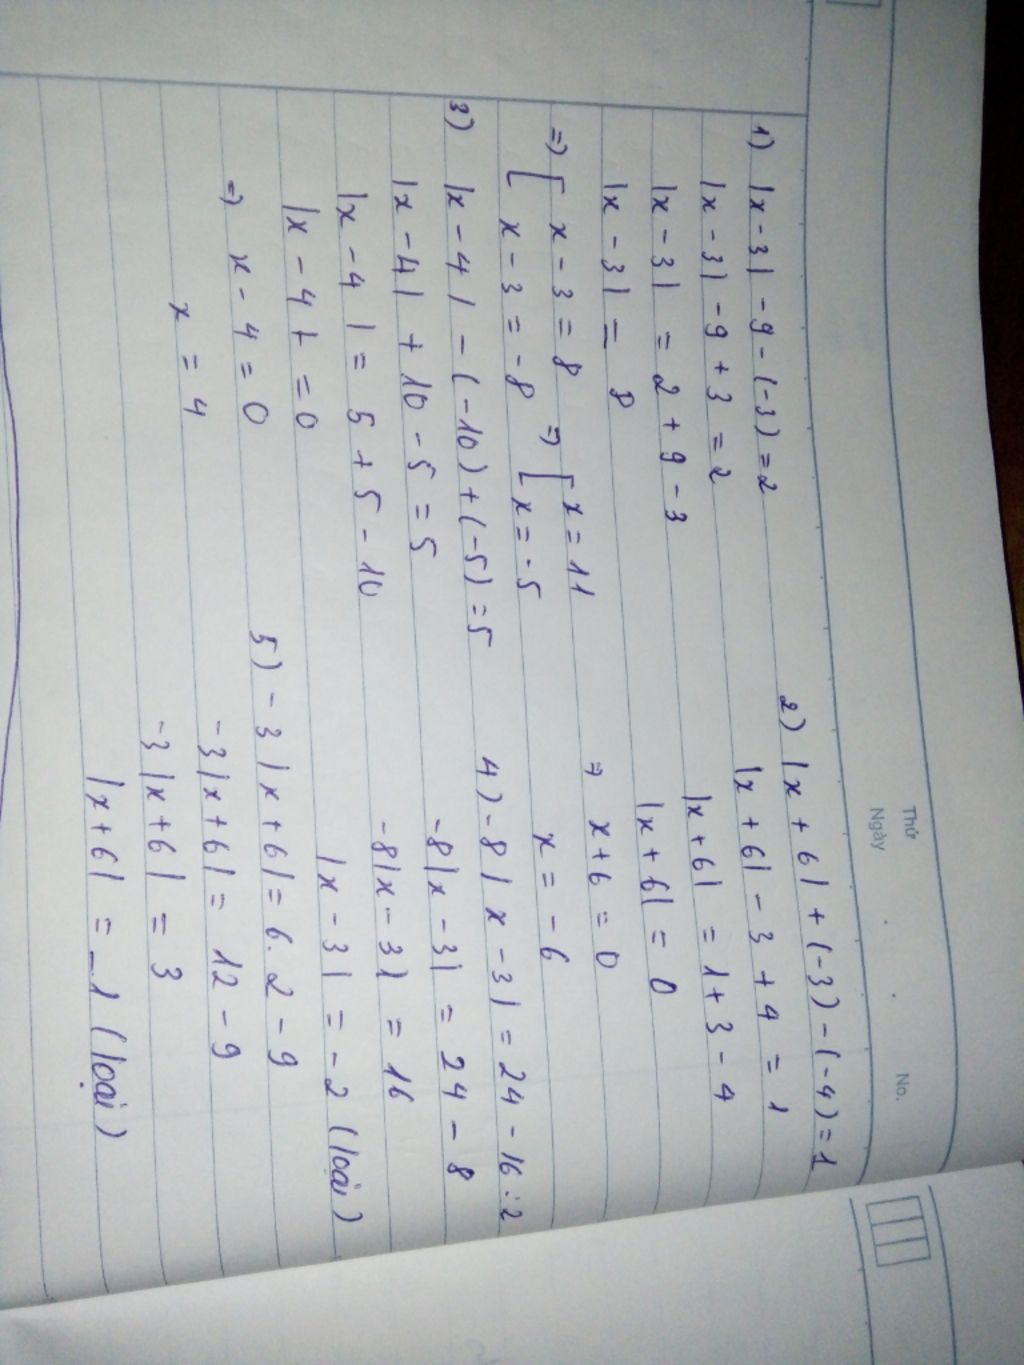 Thứ
Ngày
No.
1) |x - 3| - 9 - (-3) = 2
|x - 3| - 9 + 3 = 2
|x - 3| = 2 + 9 - 3
|x - 3| = 8
=> [ x - 3 = 8 => [ x = 11
[ x - 3 = -8 [ x = -5
2) |x + 6| + (-3) - (-4) = 1
|x + 6| - 3 + 4 = 1
|x + 6| = 1 + 3 - 4
|x + 6| = 0
=> x + 6 = 0
x = -6
3) |x - 4| - (-10) + (-5) = 5
|x - 4| + 10 - 5 = 5
|x - 4| = 5 + 5 - 10
|x - 4| = 0
=> x - 4 = 0
x = 4
4) -8|x - 3| = 24 - 16 : 2
-8|x - 3| = 24 - 8
-8|x - 3| = 16
|x - 3| = -2 (loại)
5) -3|x + 6| = 6.2 - 9
-3|x + 6| = 12 - 9
-3|x + 6| = 3
|x + 6| = -1 (loại)